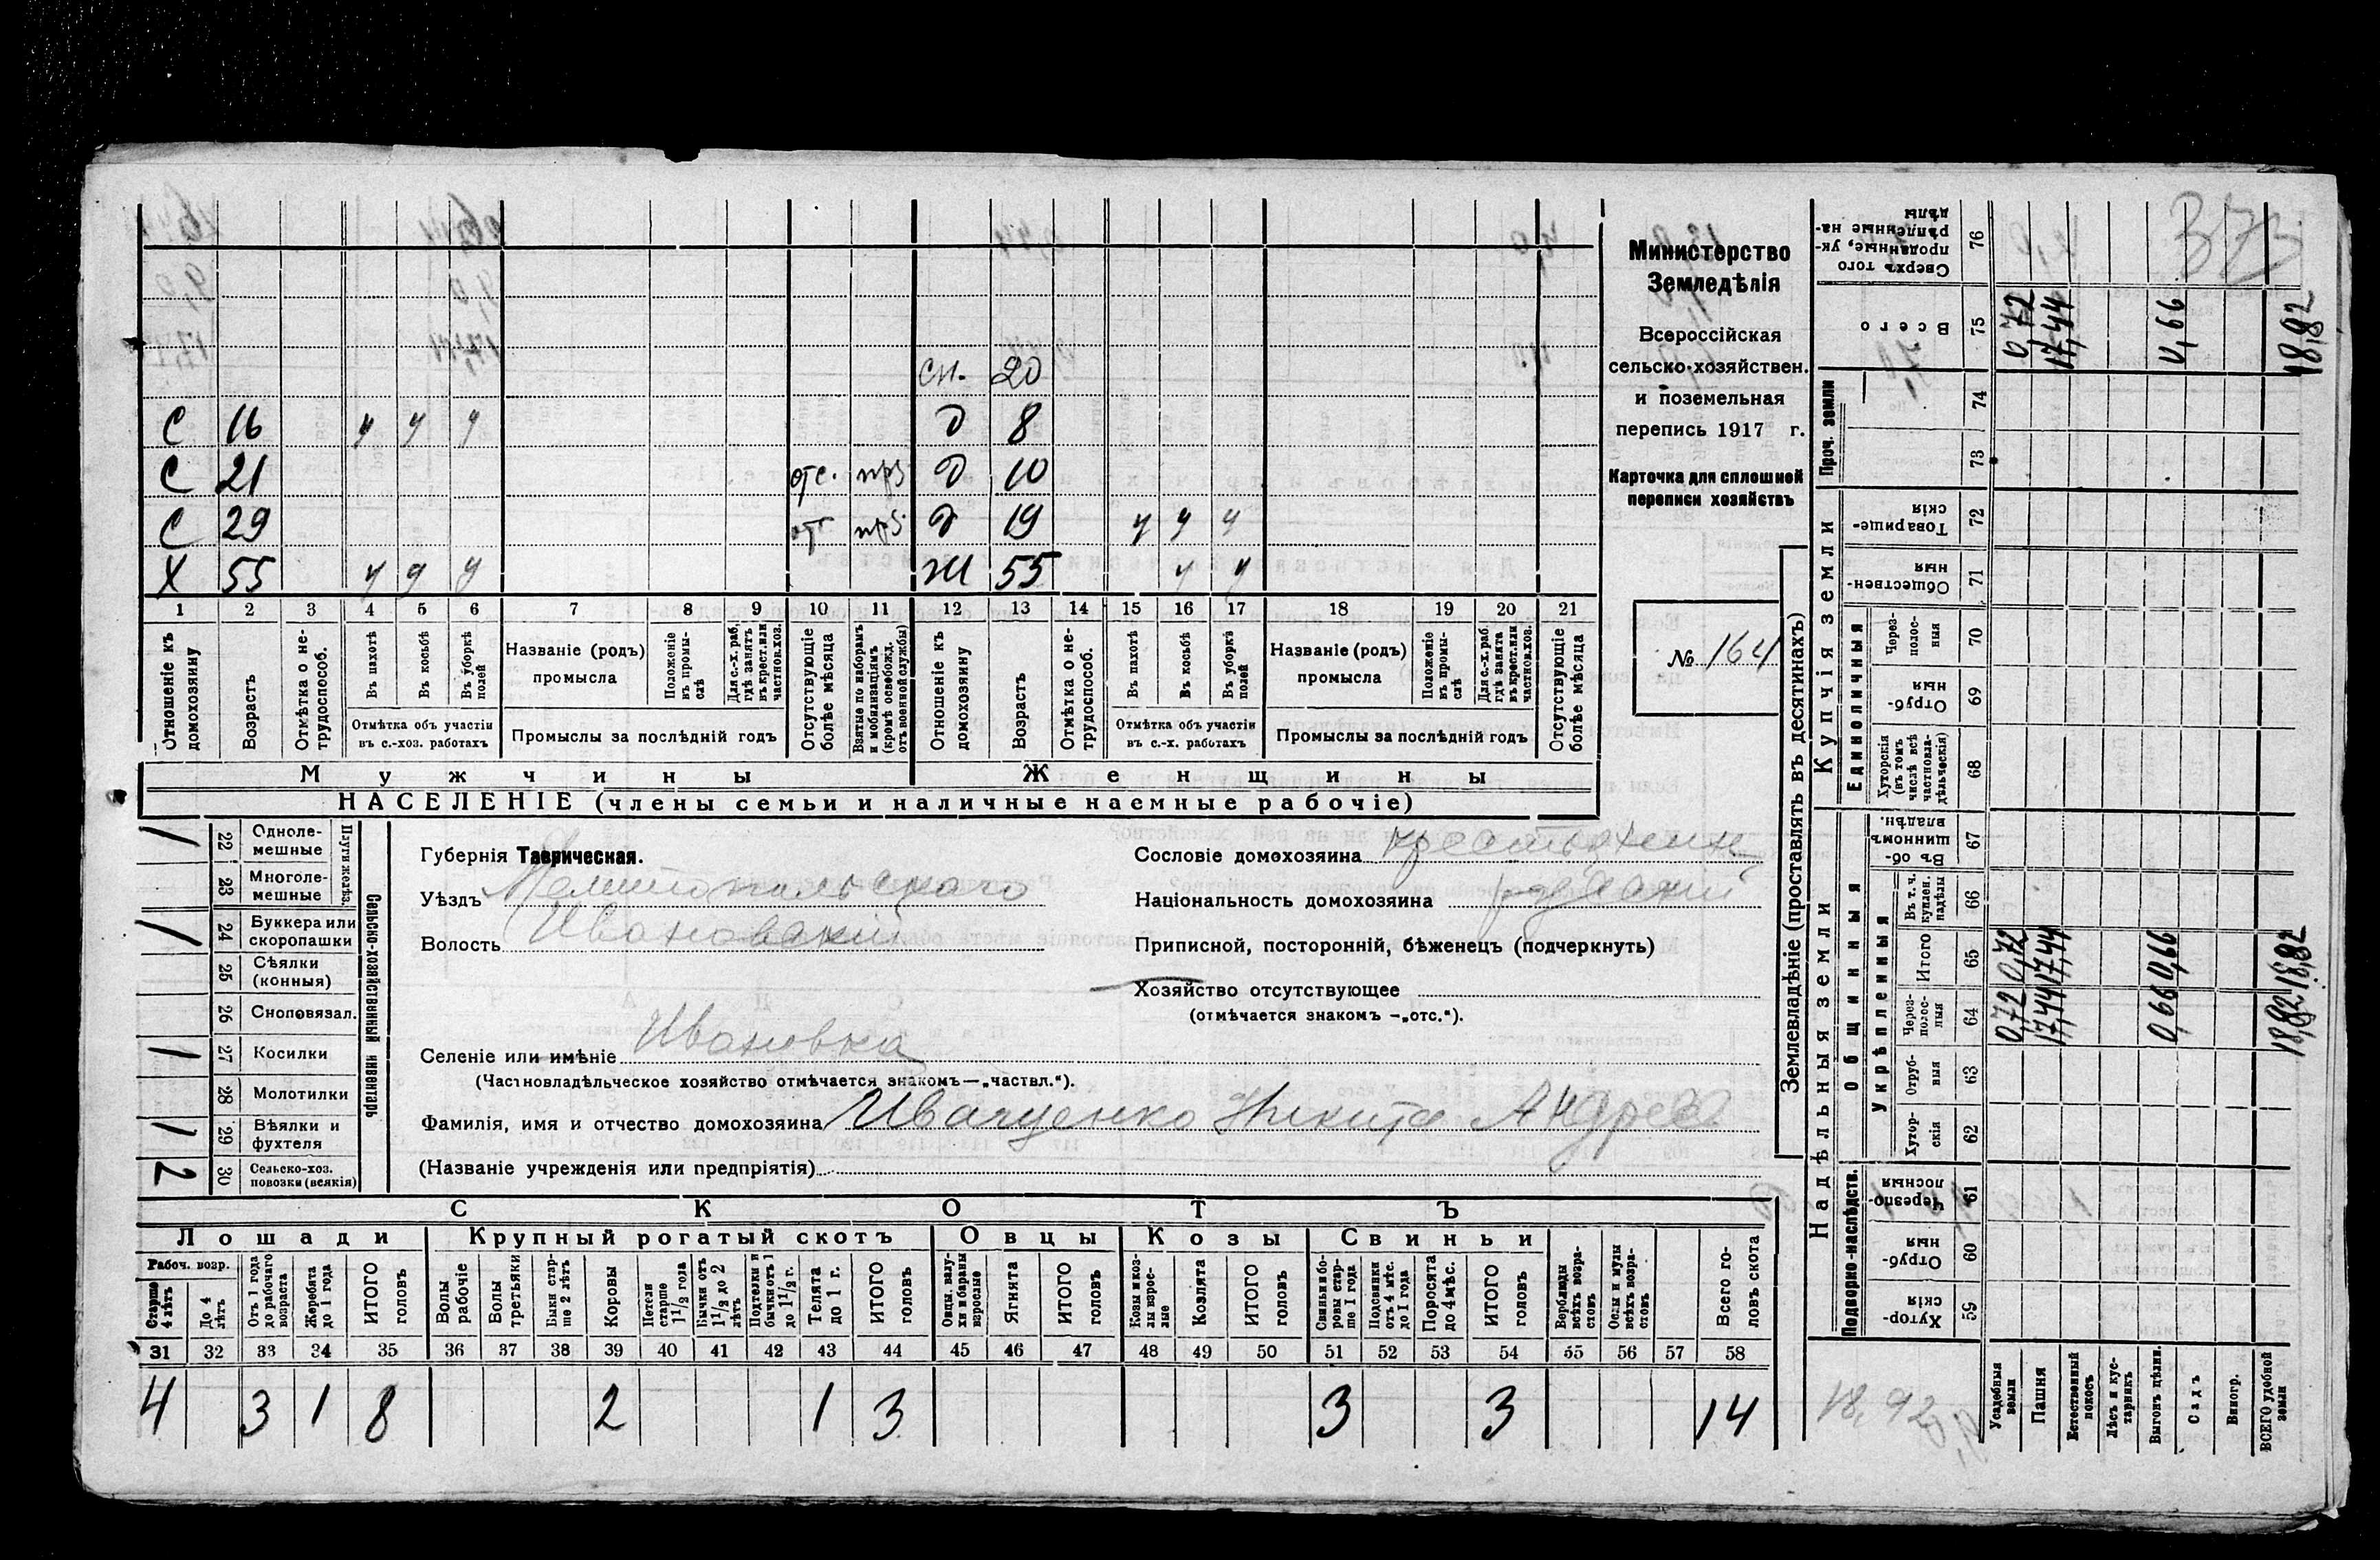 373
Министерство
Земледѣлія
Всероссійская
сельско-хозяйствен.
и поземельная
перепись 1917 г.
Карточка для сплошной
переписи хозяйствъ
№ 164
сн. 20
С 16 у у у Д 8
С 21 отс. Д 10
С 29 от Д 19 у у у
Х 55 у у у Ж 55 у у
1 2 3 4 5 6 7 8 9 10 11 12 13 14 15 16 17 18 19 20 21
Отношеніе къ домохозяину
Возрастъ
Отмѣтка о нетрудоспособ.
Въ пахотѣ
Въ косьбѣ
Въ уборкѣ полей
Отмѣтка объ участіи
въ с.-хоз. работахъ
Названіе (родъ)
промысла
Положеніе въ промыслѣ
Для с.-х. раб. гдѣ занятъ въ крест. или частнов. хоз.
Промыслы за послѣдній годъ
Отсутствующіе болѣе мѣсяца
Взятые по наборамъ и мобилизаціямъ (кромѣ освобожд. отъ военной службы)
Отношеніе къ домохозяину
Возрастъ
Отмѣтка о нетрудоспособ.
Въ пахотѣ
Въ косьбѣ
Въ уборкѣ полей
Отмѣтка объ участіи
въ с.-х. работахъ
Названіе (родъ)
промысла
Положеніе въ промыслѣ
Для с.-х. раб. гдѣ занята въ крест. или частнов. хоз.
Промыслы за послѣдній годъ
Отсутствующіе болѣе мѣсяца
Мужчины Женщины
НАСЕЛЕНІЕ (члены семьи и наличные наемные рабочіе)
Сельско-хозяйственный инвентарь
Плуги желѣз.
22 Одноле-
мешные
23 Многоле-
мешные
24 Буккера или
скоропашки
25 Сѣялки
(конныя)
26 Сноповязал.
27 Косилки
28 Молотилки
29 Вѣялки и
фухтеля
30 Сельско-хоз.
повозки (всякія)
1
1
1
1
2
Губернія Таврическая.
Уѣздъ Мелитопольскаго
Волость Ивановскій
Селеніе или имѣніе Ивановка
(Частновладѣльческое хозяйство отмѣчается знакомъ—„частвл.“).
Фамилія, имя и отчество домохозяина Иващенко Никита Андреев
(Названіе учрежденія или предпріятія)
Сословіе домохозяина крестьянин
Національность домохозяина русский
Приписной, посторонній, бѣженецъ (подчеркнуть)
Хозяйство отсутствующее
(отмѣчается знакомъ —„отс.“).
СКОТЪ
Лошади Крупный рогатый скотъ Овцы Козы Свиньи
Рабоч. возр.
Старше 4 лѣтъ
До 4 лѣтъ
Отъ 1 года до рабочаго возраста
Жеребята до 1 года
ИТОГО головъ
Волы рабочіе
Волы третьяки
Быки старше 2 лѣтъ
Коровы
Нетели старше 1 1/2 года
Бычки отъ 1 1/2 до 2 лѣтъ
Подтелки и бычки отъ 1 до 1 1/2 г.
Телята до 1 г.
ИТОГО головъ
Овцы, валухи и бараны взрослые
Ягнята
ИТОГО головъ
Козы и козлы взрослые
Козлята
ИТОГО головъ
Свиньи и боровы старше 1 года
Подсвинки отъ 4 мѣс. до 1 года
Поросята до 4 мѣс.
ИТОГО головъ
Верблюды всѣхъ возрастовъ
Ослы и мулы всѣхъ возрастовъ
Всего головъ скота
31 32 33 34 35 36 37 38 39 40 41 42 43 44 45 46 47 48 49 50 51 52 53 54 55 56 57 58
4 3 1 8 2 1 3 3 3 14
Землевладѣніе (проставлять въ десятинахъ)
Надѣльныя земли
Купчія земли
Проч. земли
Подворно-наслѣдств.
Общинныя
Укрѣпленныя
Единоличныя
Хуторскія 59
Отрубныя 60
Черезполосныя 61
Хуторскія 62
Отрубныя 63
Черезполосныя 64
Итого 65
Въ т. ч. куплен. надѣлы 66
Въ общинномъ владѣн. 67
Хуторскія (въ томъ числѣ всѣ частновладѣльческія) 68
Отрубныя 69
Черезполосныя 70
Общественныя 71
Товарищескія 72
73
74
Всего 75
Сверхъ того проданные, укрѣпленные надѣлы 76
Усадебныя земли 0,72 0,72 0,72
Пашня 17,44 17,44 17,44
Естественный покосъ
Лѣсъ и кустарникъ
Выгонъ цѣлин. 0,66 0,66 0,66
Садъ
Виногр.
ВСЕГО удобной земли 18,82 18,82 18,82
18,92